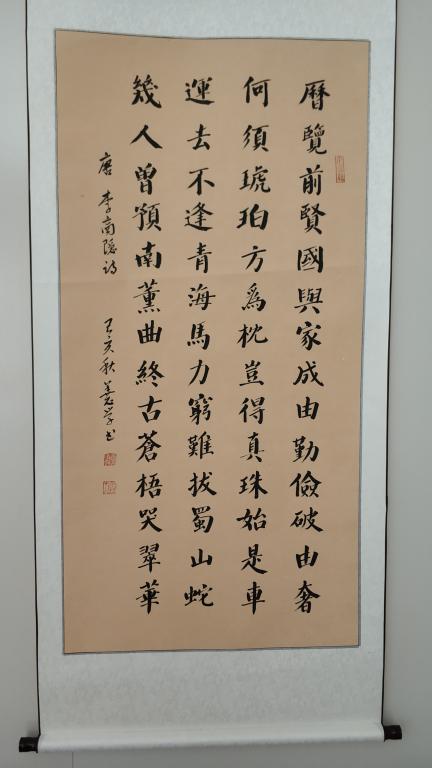 曆覽前賢國與家成由勤儉破由奢
何須琥珀方爲枕豈得真珠始是車
運去不逢青海馬力窮難拔蜀山蛇
幾人曾預南薰曲終古蒼梧哭翠華
唐 李商隐诗 己亥秋 学书